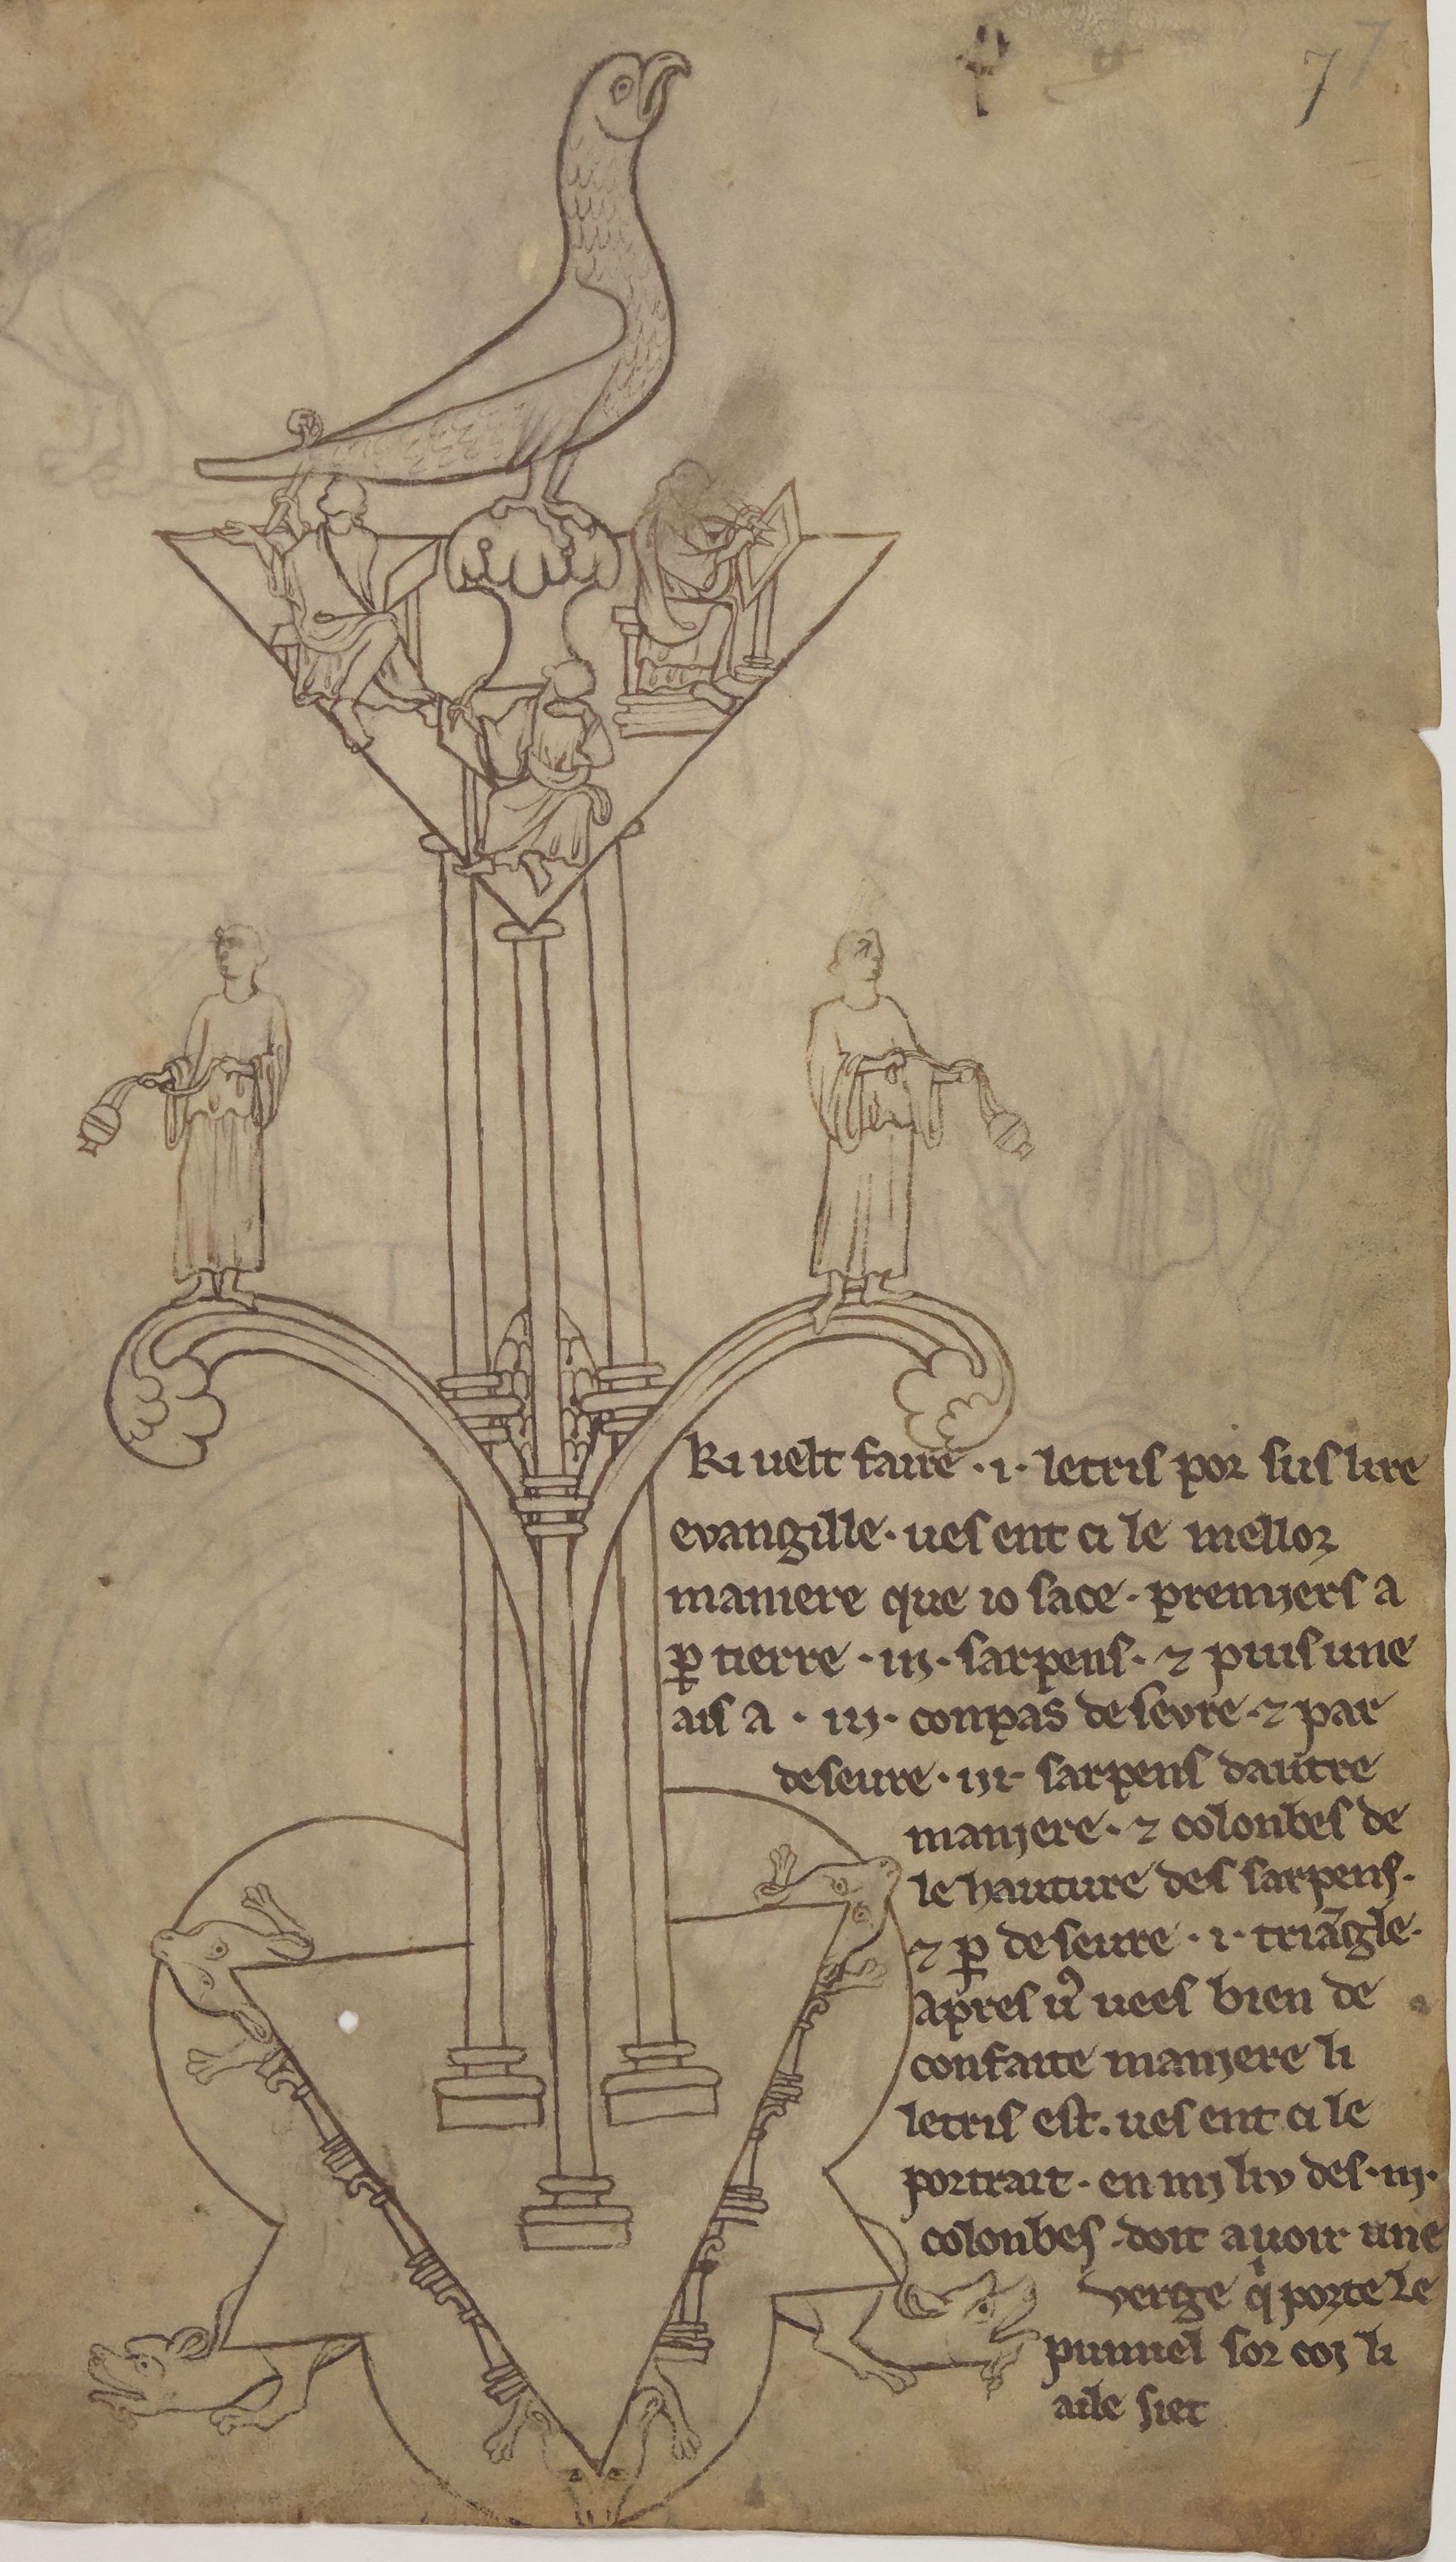 7 7
Ki velt faire ·i· letris por sus lire
evangille· ves ent ci le mellor
maniere que io sace· premiers a
ꝑ tierre ·iij· sarpens· ⁊ puis une
ais a · iij· conpas desevre ⁊ par
deseure· iij· sarpens dautre
maniere· ⁊ colonbes de
le hauture des sarpens·
⁊ ꝑ deseure ·i· triãgle·
apres vꝰ vees bien de
confaite maniere li
letris est. ves ent ci le
portrait· en miliv des ·iij·
colonbes doit avoir une
verge q̇ porte le
pumiel sor coi li
aile siet